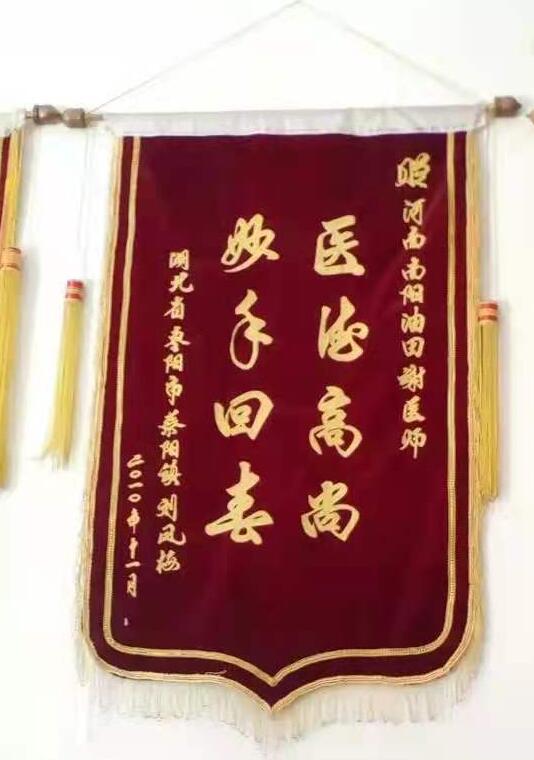 赠河南南阳油田谢医师
医德高尚
妙手回春
湖北省枣阳市蔡阳镇 刘凤梅
二〇一〇年十一月